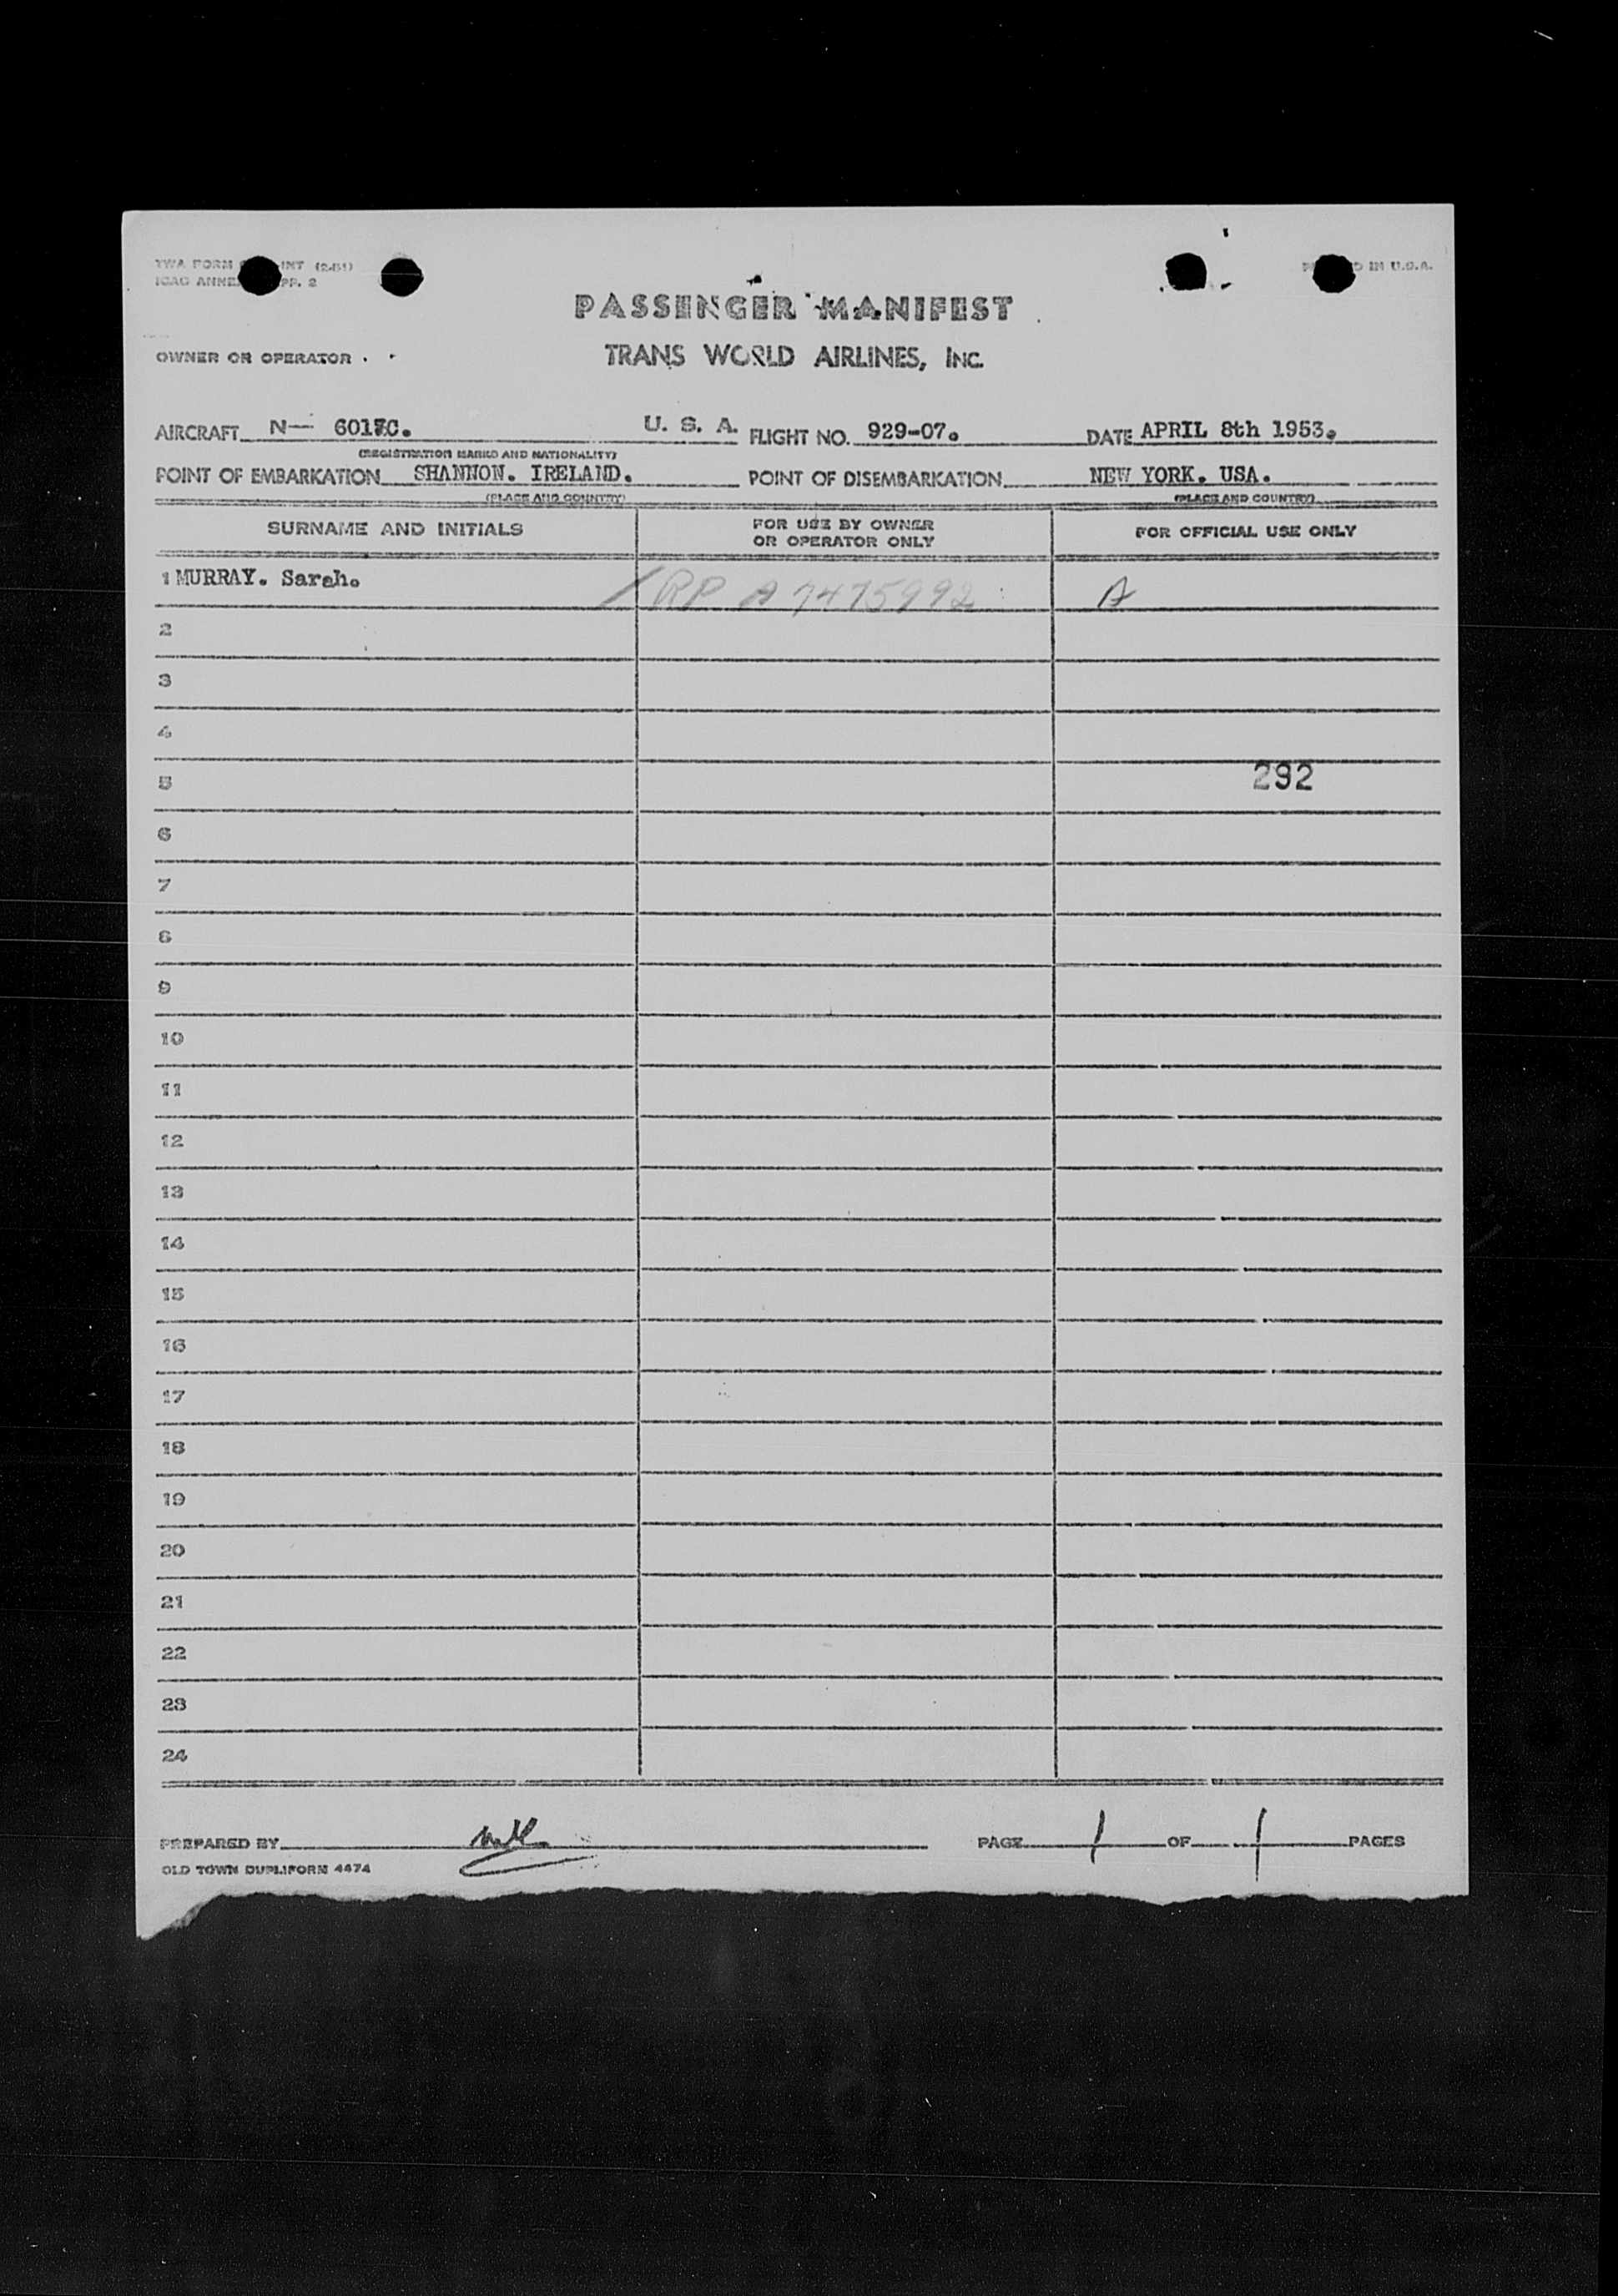 TWA FORM INT (2-51)
ICAO ANNE PP. 2
D IN U.S.A.
PASSENGER MANIFEST
OWNER OR OPERATOR
TRANS WORLD AIRLINES, INC.
AIRCRAFT N— C. U. S. A. FLIGHT NO. 929-07. DATE APRIL 8th 1953.
(REGISTRATION MARKS AND NATIONALITY)
POINT OF EMBARKATION SHANNON. IRELAND. POINT OF DISEMBARKATION NEW YORK. USA.
(PLACE AND COUNTRY) (PLACE AND COUNTRY)
SURNAME AND INITIALS
FOR USE BY OWNER
OR OPERATOR ONLY
FOR OFFICIAL USE ONLY
1 MURRAY. Sarah. RP A 7475992 A
2
3
4
5 292
6
7
8
9
10
11
12
13
14
15
16
17
18
19
20
21
22
23
24
PREPARED BY PAGE 1 OF 1 PAGES
OLD TOWN DUPLIFORM 4474